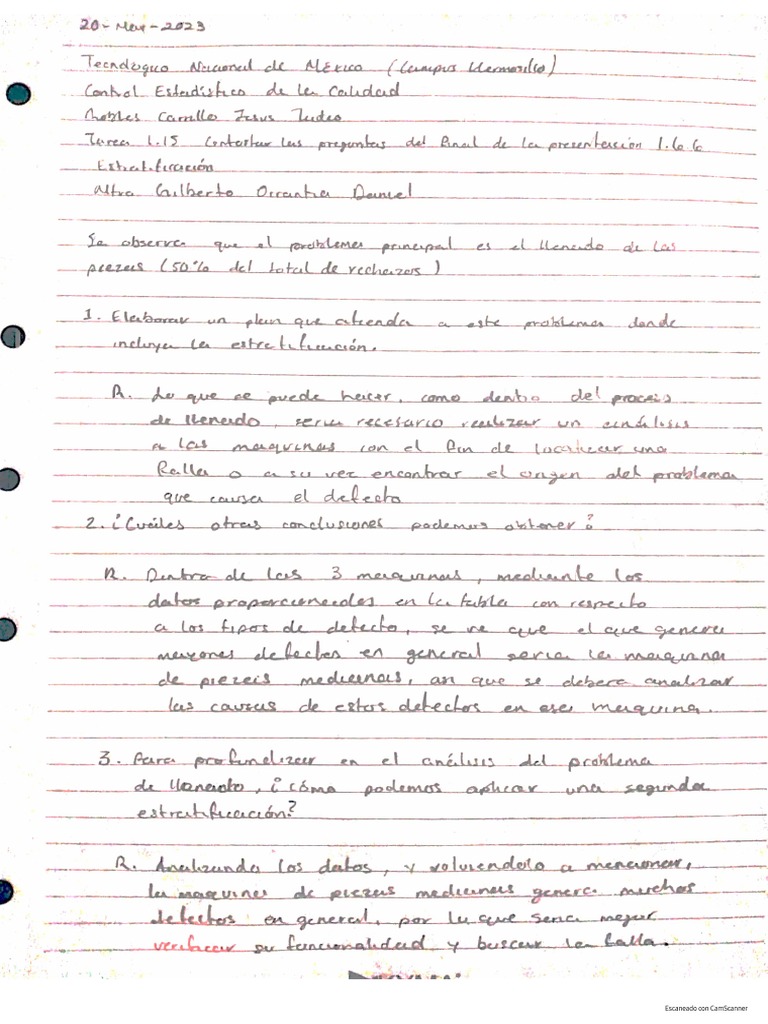 20-Mar-2023
Tecnologico Nacional de México (Campus Hermosillo)
Control Estadístico de la Calidad
Robles Carrillo Jesus Tadeo
Tarea 1.15 Contestar las preguntas del final de la presentación 1.6.6
Estratificación
Mtro Gilberto Orrantia Daniel
Se observa que el problema principal es el llenado de las
piezas (50% del total de rechazos)
1. Elaborar un plan que atienda a este problema donde
incluya la estratificación.
R. Lo que se puede hacer, como dentro del proceis
de llenado, seria necesario realizar un análisis
a las maquinas con el fin de localizar una
falla o a su vez encontrar el origen del problema
que causa el defecto
2. ¿Cuáles otras conclusiones podemos obtener?
R. Dentro de las 3 maquinas, mediante los
datos proporcionados en la tabla con respecto
a los tipos de defecto, se ve que el que genera
mayores defectos en general seria la maquina
de piezas medianas, asi que se debera analizar
las causas de estos defectos en esa maquina.
3. Para profundizar en el análisis del problema
de llenado, ¿cómo podemos aplicar una segunda
estratificación?
R. Analizando los datos, y volviendolo a mencionar,
la maquina de piezas medianas genera muchos
defectos en general, por lo que seria mejor
verificar su funcionalidad y buscar la falla.
Escaneado con CamScanner